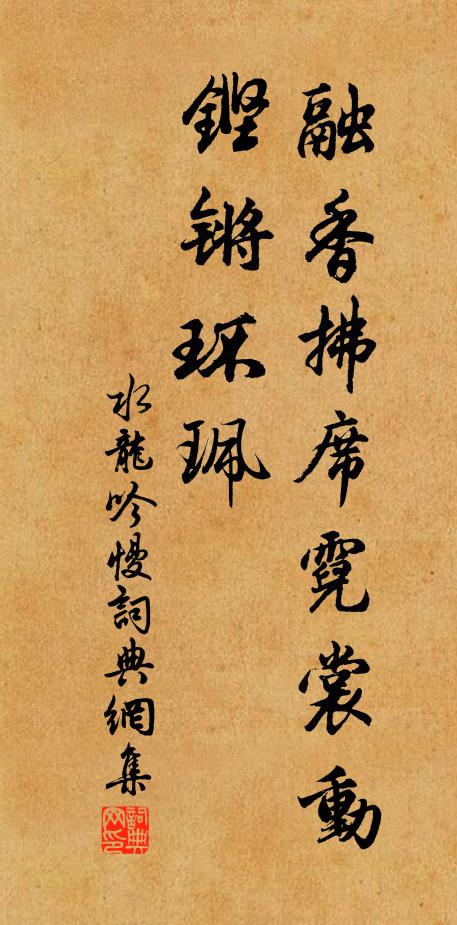 融香拂席霓裳動
鏗锵环珮
水龍吟慢詞典網集
詞典网印